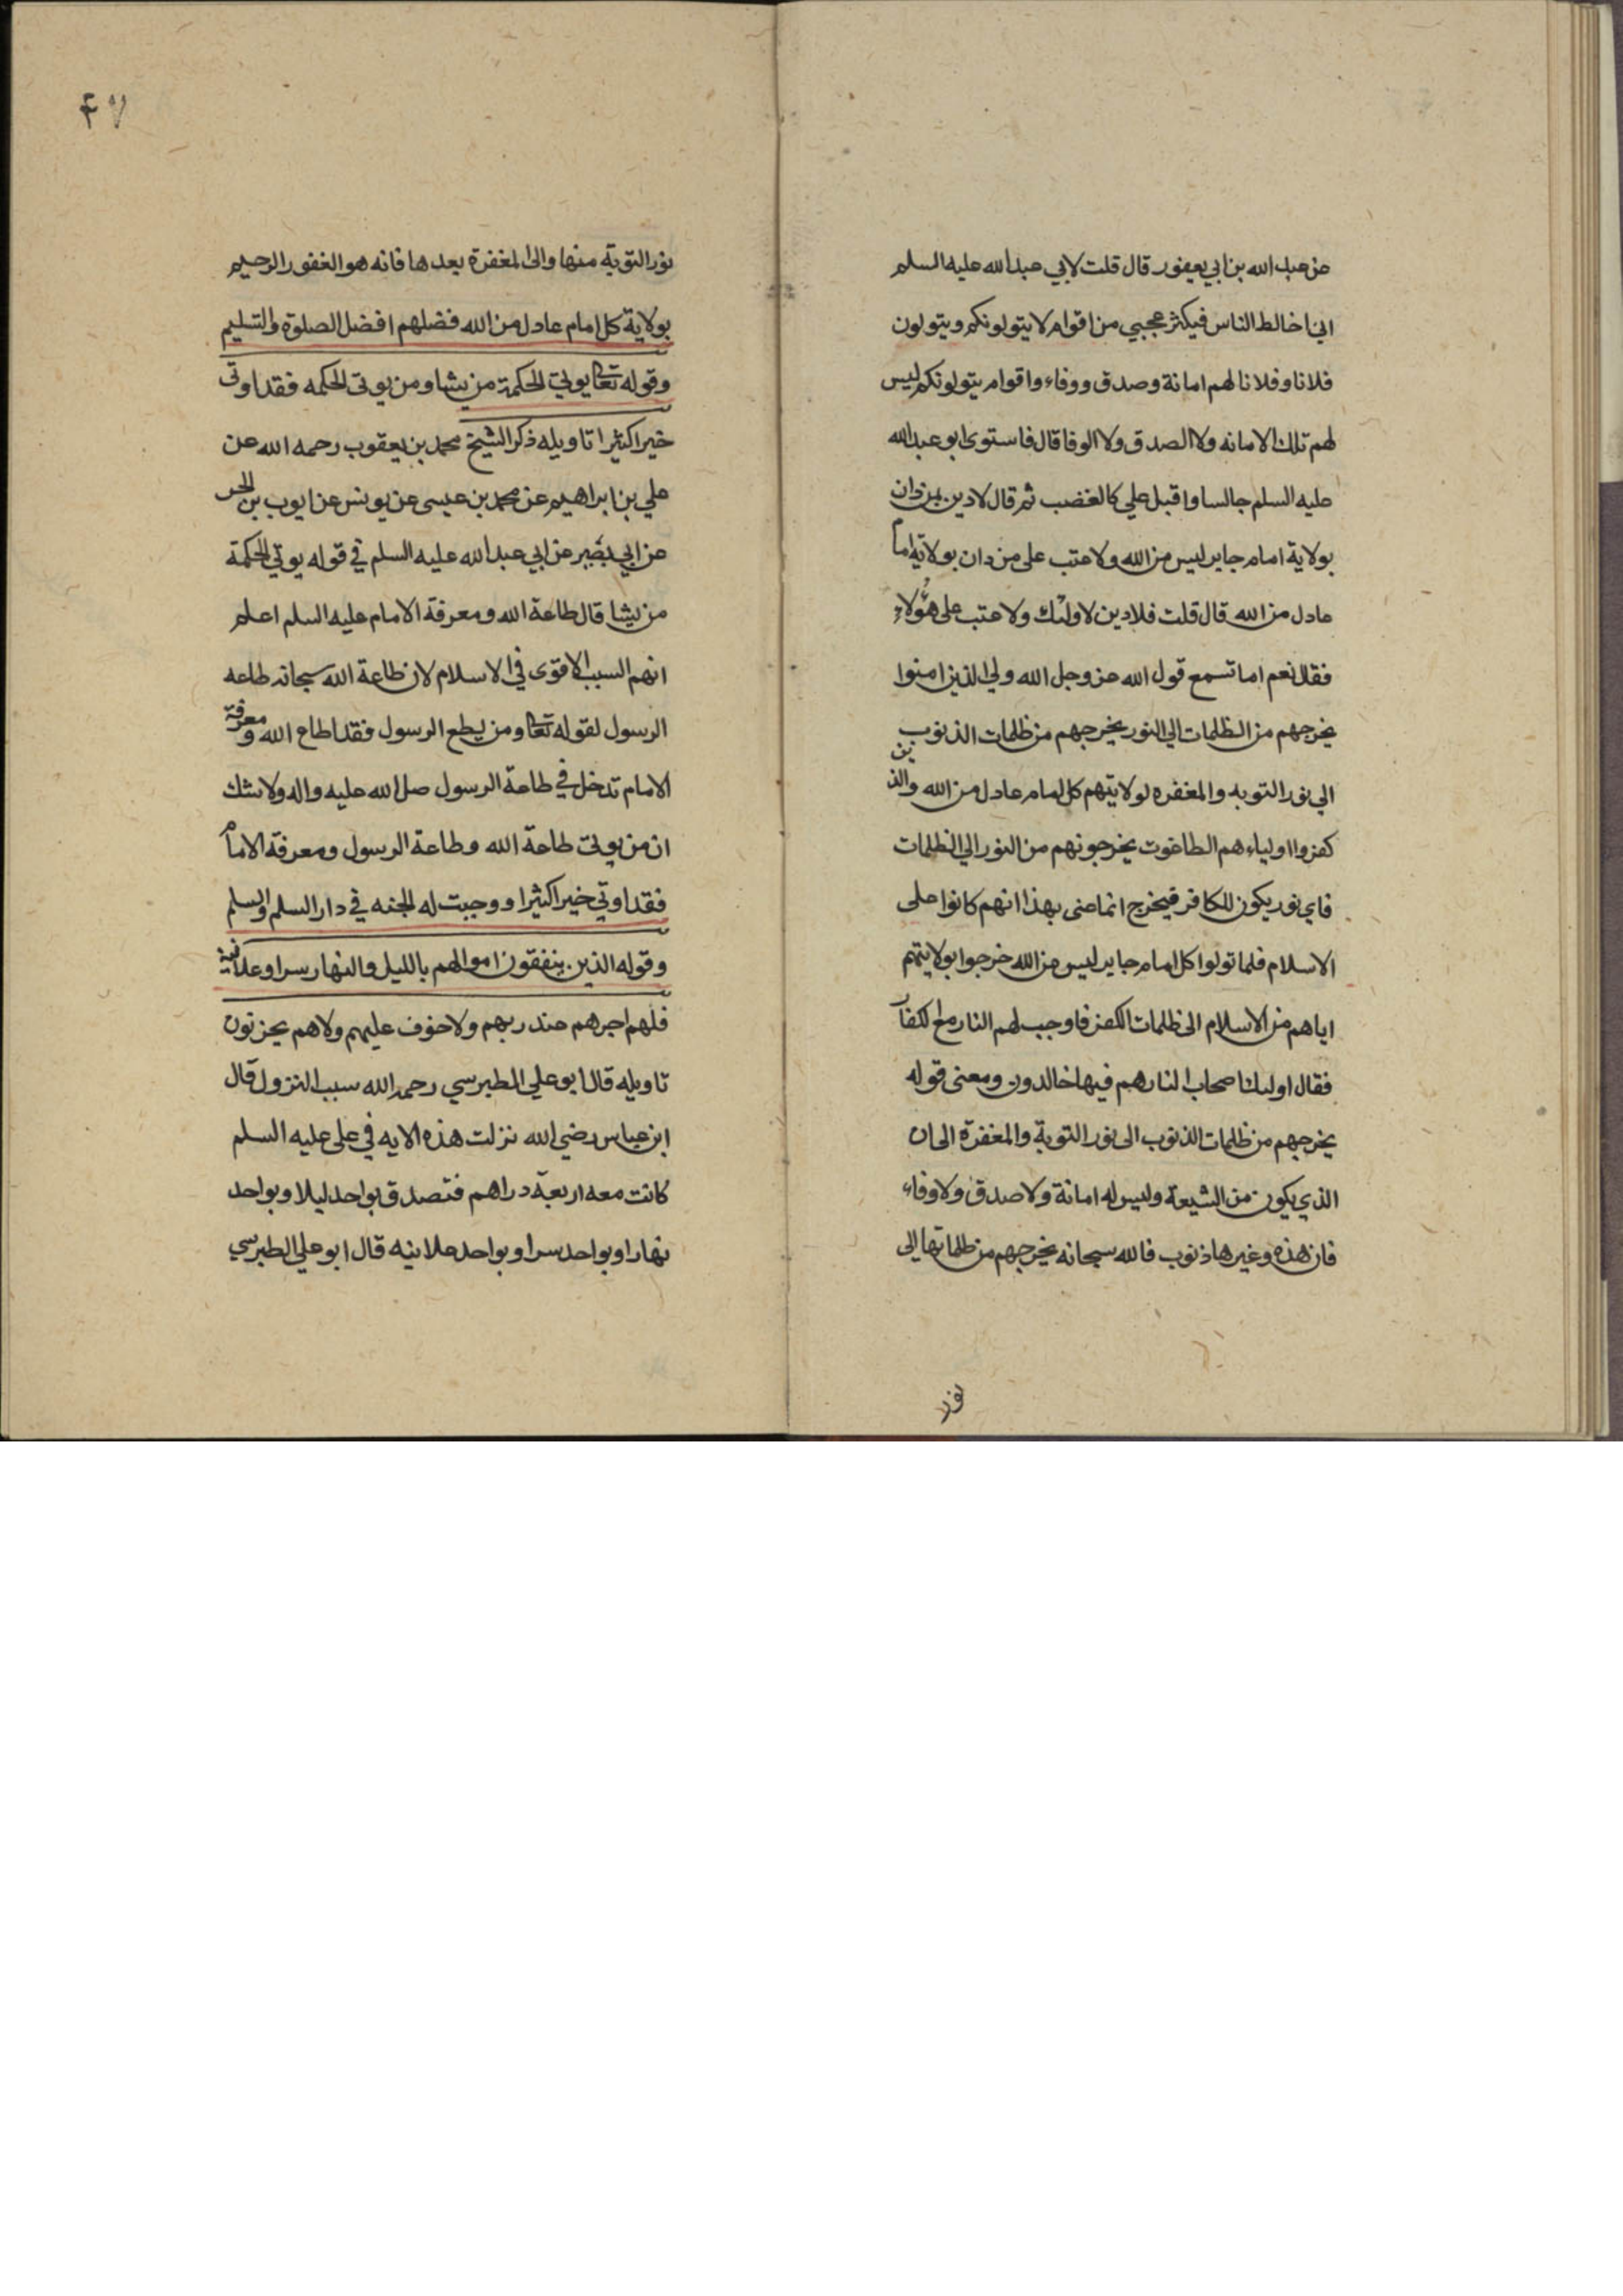 عن عبد الله بن ابي يعفور قال قلت لابي عبد الله عليه السلم
اني اخالط الناس فيكثر عجبي من اقوام لا يتولونكم ويتولون
فلانا وفلانا لهم امانة وصدق ووفاء واقوام يتولونكم ليس
لهم تلك الامانه ولا الصدق ولا الوفا قال فاستوى ابو عبد الله
عليه السلم جالسا واقبل علي كالغضب ثم قال لا دين لمن دان
بولاية امام جاير ليس من الله ولا عتب على من دان بولاية امام
عادل من الله قال قلت فلا دين لاولئك ولا عتب على هؤلاء
فقال نعم اما تسمع قول الله عز وجل الله ولي الذين امنوا
يخرجهم من الظلمات الي النور يخرجهم من ظلمات الذنوب
الي نور التوبه والمغفره لولايتهم كل امام عادل من الله والذين
كفروا اولياءهم الطاغوت يخرجونهم من النور الي الظلمات
فاي نور يكون للكافر فيخرج انما عنى بهذا انهم كانوا على
الاسلام فلما تولوا كل امام جاير ليس من الله خرجوا بولايتهم
اياهم من الاسلام الى ظلمات الكفر فاوجب لهم النار مع الكفار
فقال اولئك اصحاب النار هم فيها خالدون ومعنى قوله
يخرجهم من ظلمات الذنوب الى نور التوبة والمغفرة الى ان
الذي يكون من الشيعة وليس له امانة ولا صدق ولا وفاء
فان هذه وغيرها ذنوب فالله سبحانه يخرجهم من ظلماتها الى
نور
٤٧
نور التوبة منها والى المغفرة بعدها فانه هو الغفور الرحيم
بولاية كل امام عادل من الله فضلهم افضل الصلوة والتسليم
وقوله تعالى يوتي الحكمة من يشا ومن يوتى الحكمه فقد اوتى
خيرا كثيرا تاويله ذكر الشيخ محمد بن يعقوب رحمه الله عن
علي بن ابراهيم عن محمد بن عيسى عن يونس عن ايوب بن الحر
عن ابي بصير عن ابي عبد الله عليه السلم في قوله يوتي الحكمة
من يشا قال طاعة الله ومعرفة الامام عليه السلم اعلم
انهم السبب الاقوى في الاسلام لان طاعة الله سبحانه طاعه
الرسول لقوله تعالى ومن يطع الرسول فقد اطاع الله ومعرفة
الامام تدخل في طاعة الرسول صلى الله عليه واله ولا شك
ان من يوتى طاعة الله وطاعة الرسول ومعرفة الامام
فقد اوتي خيرا كثيرا ووجبت له الجنه في دار السلم والسلم
وقوله الذين ينفقون اموالهم بالليل والنهار سرا وعلانية
فلهم اجرهم عند ربهم ولا خوف عليهم ولا هم يحزنون
تاويله قال ابو علي الطبرسي رحمه الله سبب النزول قال
ابن عباس رضي الله نزلت هذه الايه في على عليه السلم
كانت معه اربعة دراهم فتصدق بواحد ليلا وبواحد
نهارا وبواحد سرا وبواحد علانيه قال ابو علي الطبرسي